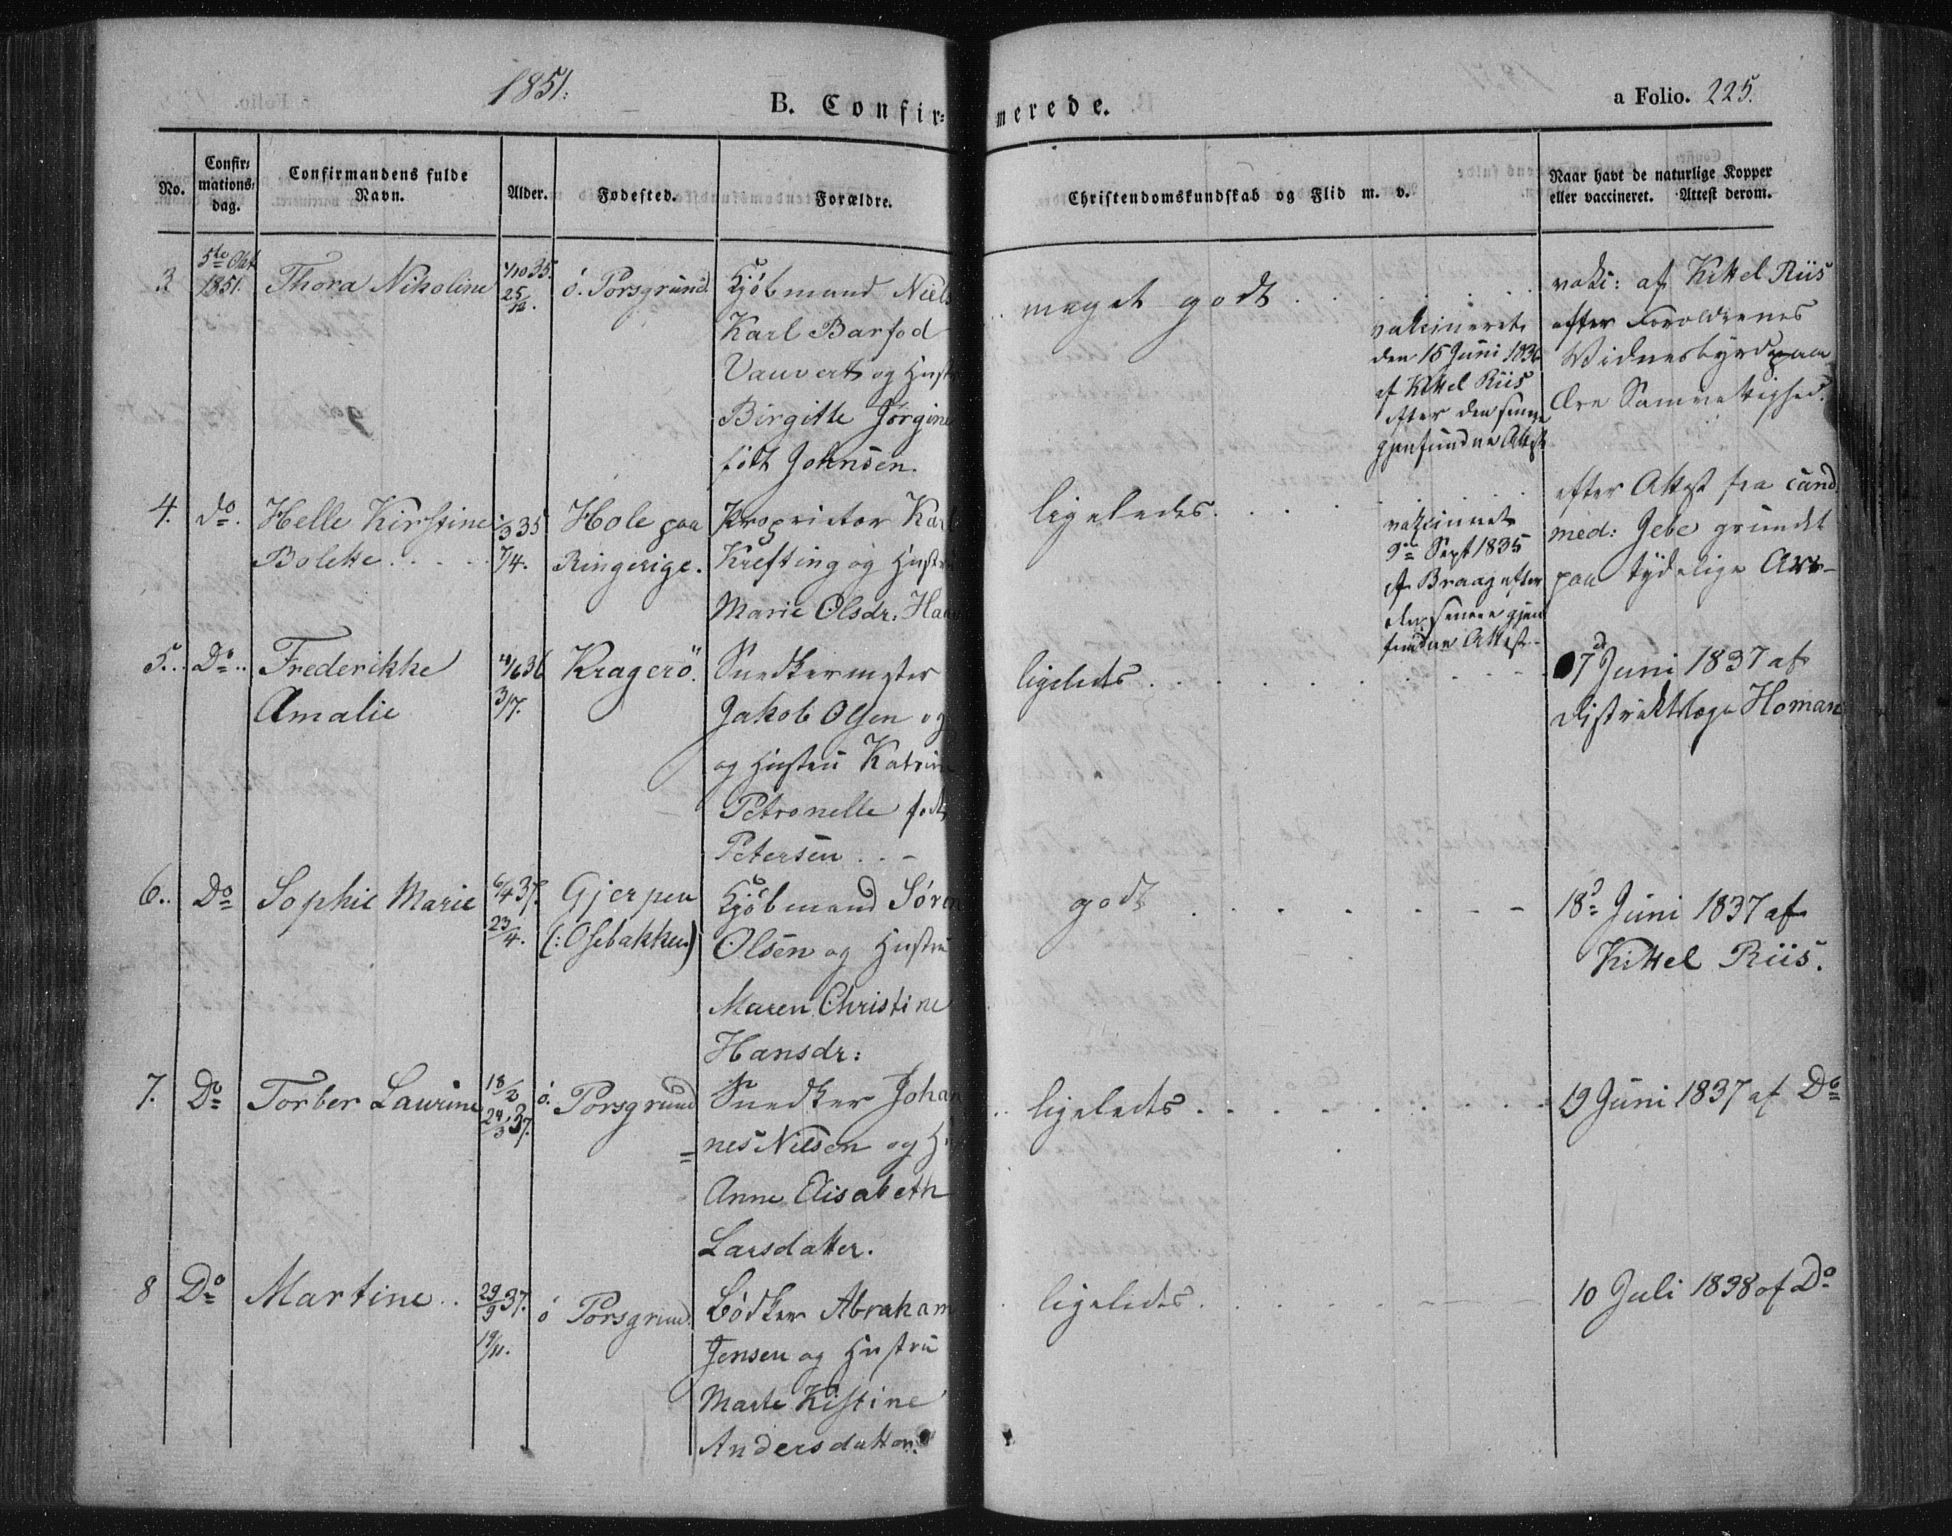 1851.
B. Confir=
merede.
a Folio. 225.
No.
Confir=
mations=
dag.
Confirmandens fulde
Navn.
Alder.
Fødested.
Forældre.
Christendomskundskab og Flid m. v.
Naar havt de naturlige Kopper
eller vaccineret. Attest derom.
3
5te Okt
1851.
Thora Nikoline
4/10 35.
25/12.
ö. Porsgrund
Kjöbmand Niels
Karl Barfod
Vauvert og Hustr
Birgitte Jørgine
født Johnsen.
meget godt . . . . .
vakcineret
den 15 Juni 1836
af Kittel Riis
efter den senere
gjenfundne Attest
vakc: af Kittel Riis
efter Forældrenes
Vidnesbyrd paa
Ære Samvittighed.
4.
do.
Helle Kirstine
Bolette . . . .
3 35
7/4.
Hole paa
Ringerige.
Proprietær Karl
Krefting og Hustru
Marie Olsdr. Haa
ligeledes. . . . .
vakcineret
9de Sept 1835
af Braag efter
den senere gjen
fundne Attest.
efter Attest fra cand.
med: Jebe grundet
paa tydelige Arr-
5..
Do..
Frederikke
Amalie
/6 36
3/7.
Kragerö.
Snedkermester
Jakob Olsen og
og Hustru Katrine
Petronelle født
Petersen . . -
ligeledes . . . . . . . .
7d Juni 1837 af
Distriktslæge Homan
6..
Do
Sophie Marie
6/4 37.
23/4.
Gjerpen
(: Osebakken)
Kjöbmand Sören
Olsen og Hustru
Maren Christine
Hansdr:
godt . . . . . - - -
18d Juni 1837 af
Kittel Riis.
7.
Do
Torber Laurine
18/2
24/3 37.
ö. Porsgrund
Snedker Johan
=
nes Nilsen og H
Anne Elisabeth
Larsdatter.
ligeledes . . . . . . . .
19 Juni 1837 af Do
8
Do
Martine . .
29/9 37.
19/11.
ö Porsgrund.
Bödker Abraham
Jensen og Hustru
Marte Kistine
Andersdatter.
ligeledes . . . . . - - -
10 Juli 1838 af Do